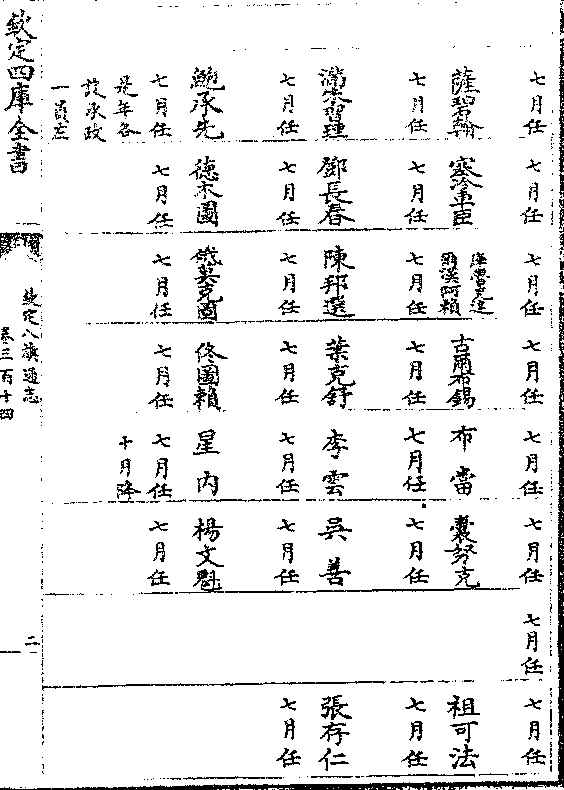 七月任 七月任 七月任 七月任 七月任 七月任 七月任
薩碧翰 塞冷車臣 庫魯克達爾漢阿賴 古爾布錫 布當 囊努克 祖可法
七月任 七月任 七月任 七月任 七月任 七月任 七月任
鄧長春 陳邦選 葉克舒 李雲 吳善 張存仁
七月任 七月任 七月任 七月任 七月任 七月任 七月任
鮑承先 德木圖 俄莫克圖 佟圖賴 星內 楊文魁
七月任 七月任 七月任 七月任 七月任 七月任
是年各 十月降
設承政
一員左
欽定四庫全書
欽定八旗通志
卷三百十四
二